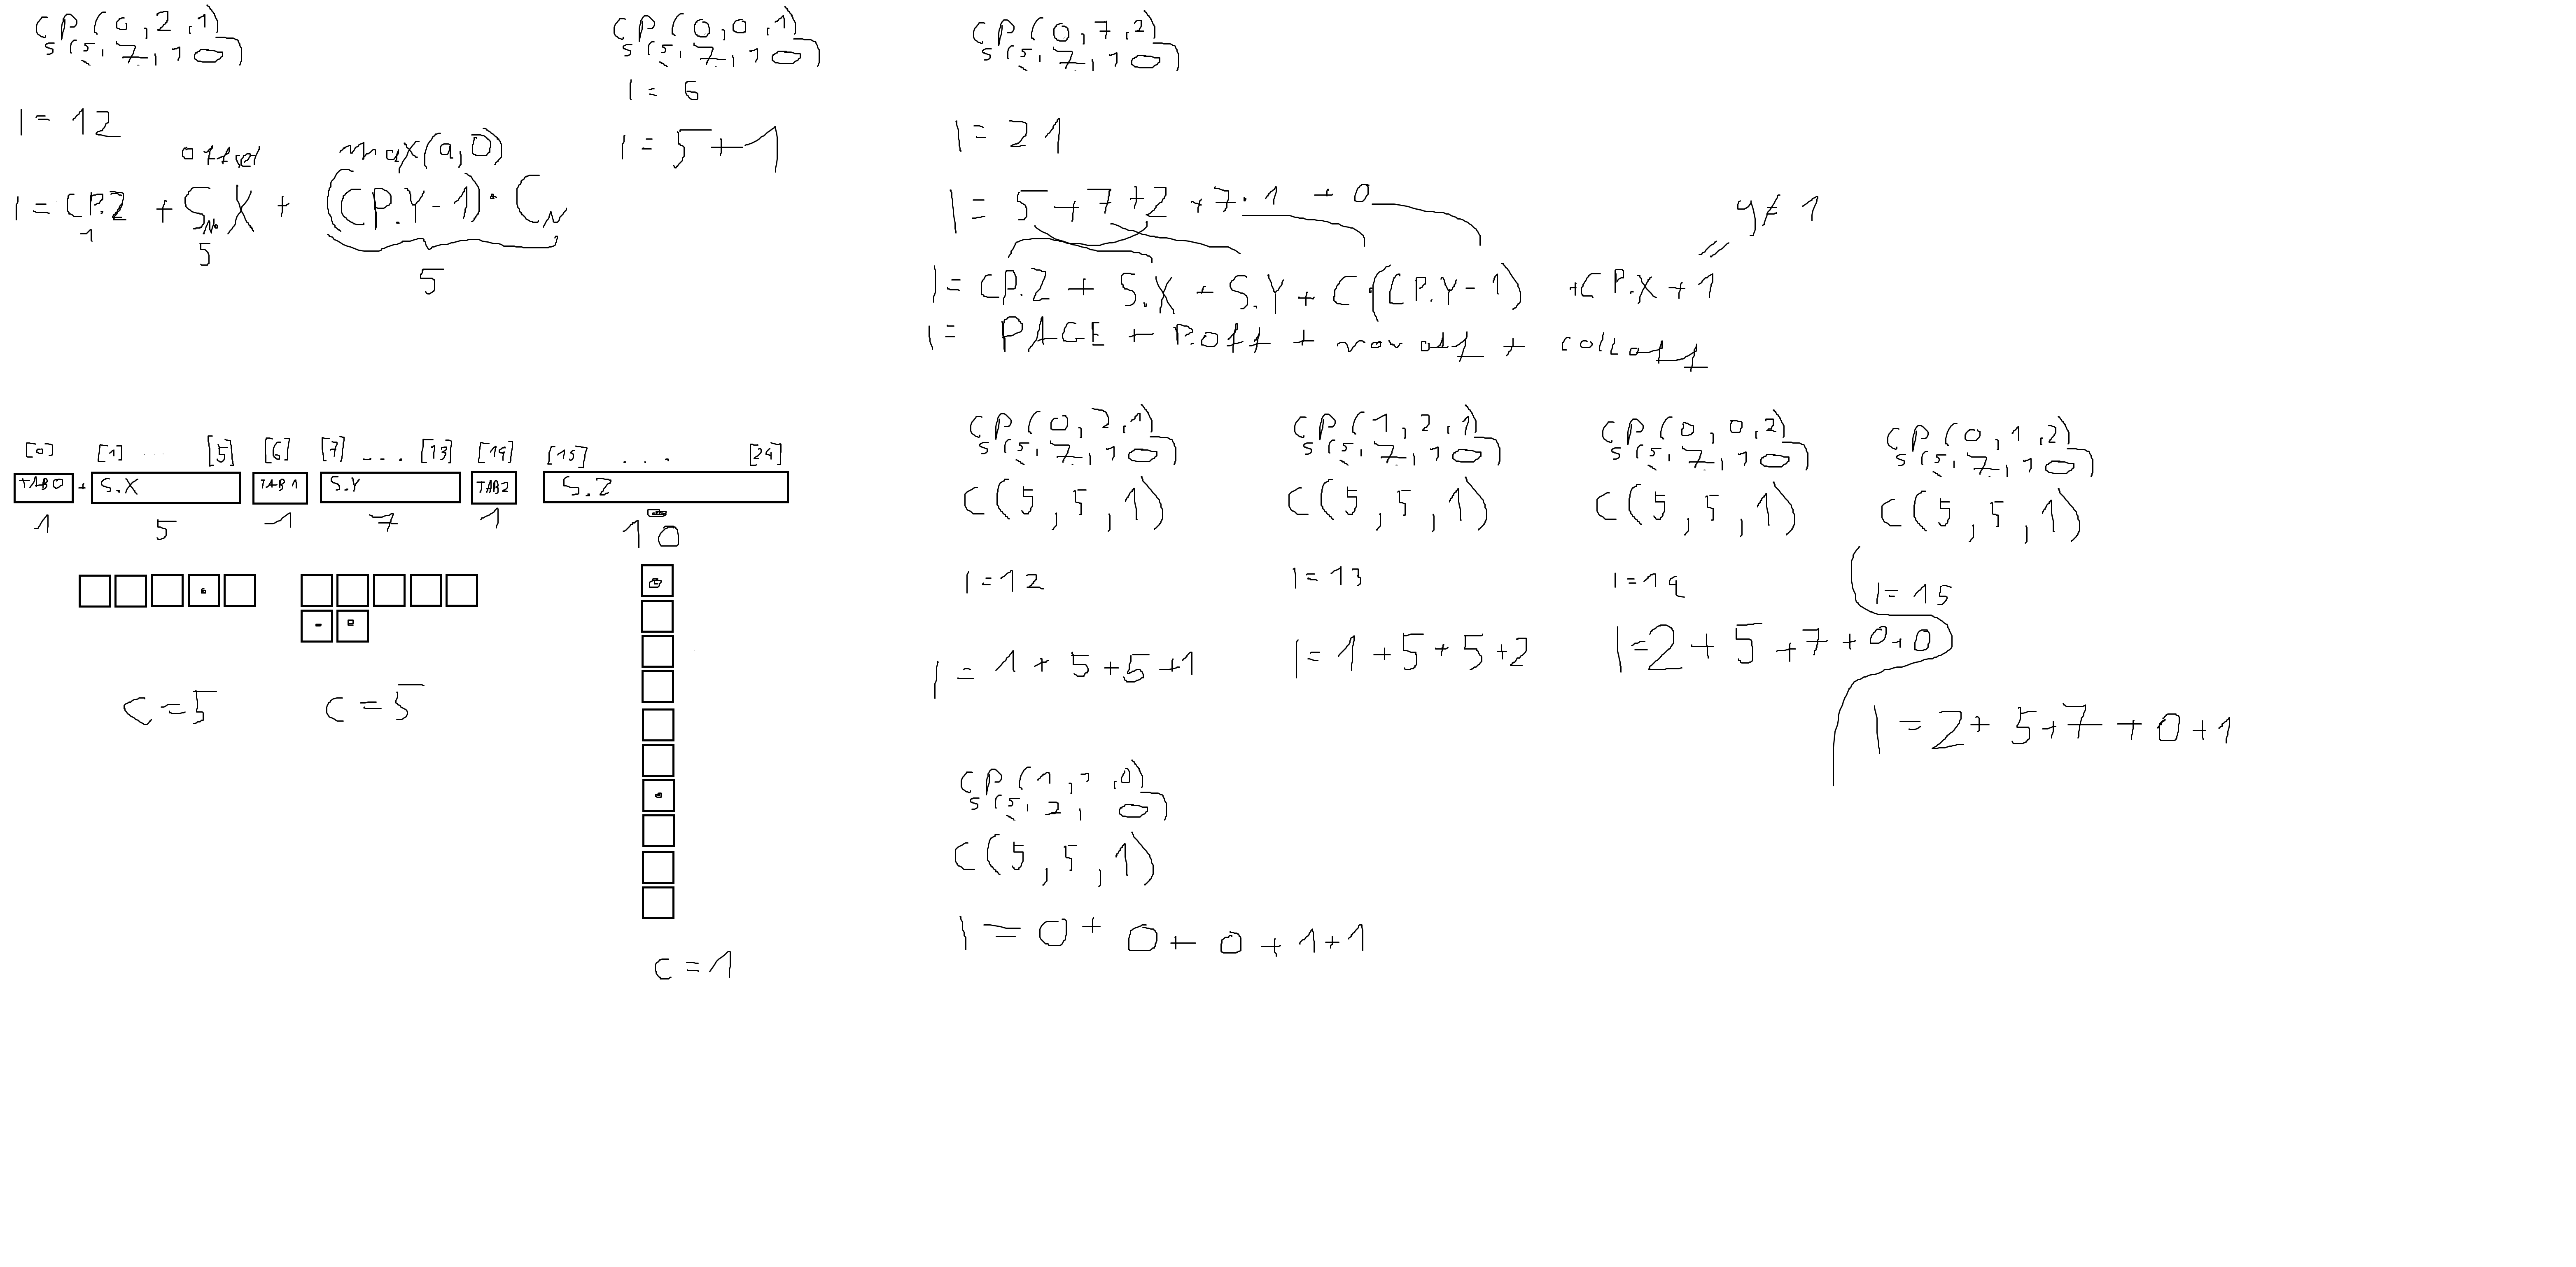 CP(0,2,1)
S(5,7,10)
I = 12
offset
max(a,0)
I = CP.Z + S.X + (CP.Y-1)·C
1
5
5
CP(0,0,1)
S(5,7,10)
I = 6
I = 5+1
CP(0,7,2)
S(5,7,10)
I = 21
I = 5+7+2+7·1 + 0
y≠1
I = CP.Z + S.X + S.Y + C·(CP.Y-1) +CP.X+1
I = PAGE + P.off + row off + coll off
[0] [1] ... [5] [6] [7] ... [13] [14] [15] ... [24]
TAB0 + S.X TAB1 S.Y TAB2 S.Z
1 5 1 7 1 10
C=5 C=5
C=1
CP(0,2,1)
S(5,7,10)
C(5,5,1)
I=12
I = 1+5+5+1
CP(1,2,1)
S(5,7,10)
C(5,5,1)
I=13
I=1+5+5+2
CP(0,0,2)
S(5,7,10)
C(5,5,1)
I=14
I=2+5+7+0+0
CP(0,1,2)
S(5,7,10)
C(5,5,1)
I=15
I=2+5+7+0+1
CP(1,1,0)
S(5,2,0)
C(5,5,1)
I=0+0+0+1+1